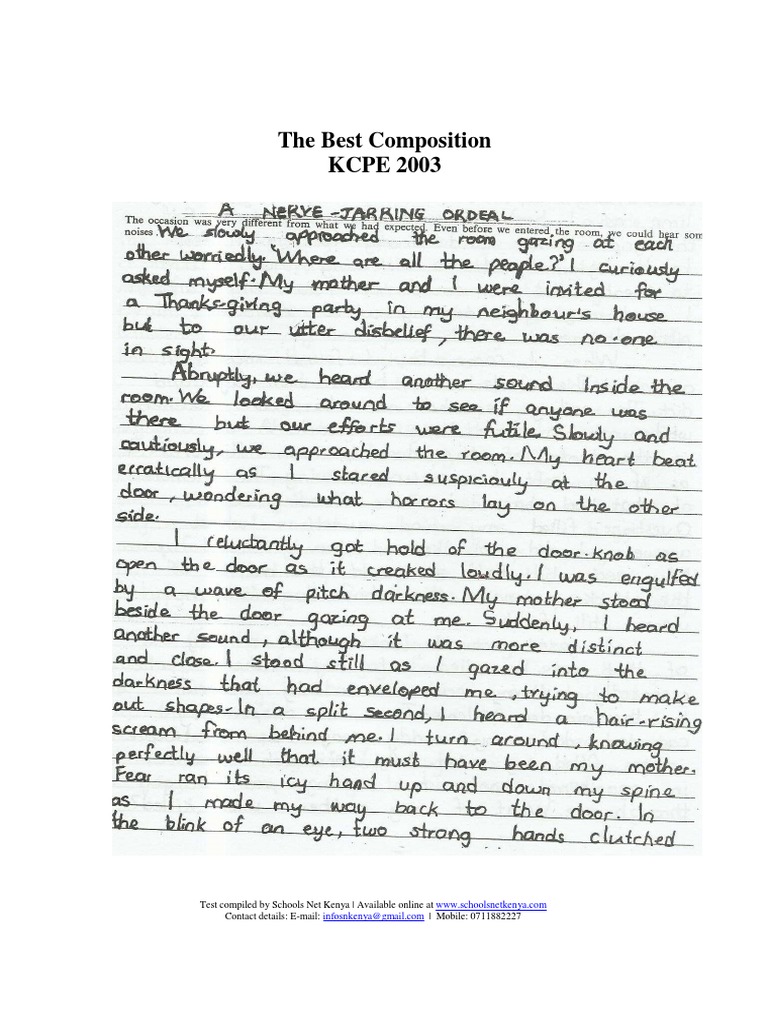 The Best Composition
KCPE 2003
A NERVE-JARRING ORDEAL
The occasion was very different from what we had expected. Even before we entered the room, we could hear som
noises. We slowly approached the room gazing at each
other worriedly. "Where are all the people?" I curiously
asked myself. My mother and I were invited for
a Thanks-giving party in my neighbour's house
but to our utter disbelief, there was no-one
in sight.
Abruptly, we heard another sound inside the
room. We looked around to see if anyone was
there but our efforts were futile. Slowly and
cautiously, we approached the room. My heart beat
erratically as I stared suspiciouly at the
door, wondering what horrors lay on the other
side.
I reluctantly got hold of the door-knob as
open the door as it creaked loudly. I was engulfed
by a wave of pitch darkness. My mother stood
beside the door gazing at me. Suddenly, I heard
another sound, although it was more distinct
and close. I stood still as I gazed into the
darkness that had enveloped me, trying to make
out shapes. In a split second, I heard a hair-rising
scream from behind me. I turn around, knowing
perfectly well that it must have been my mother.
Fear ran its icy hand up and down my spine
as I made my way back to the door. In
the blink of an eye, two strong hands clutched
Test compiled by Schools Net Kenya | Available online at www.schoolsnetkenya.com
Contact details: E-mail: infosnkenya@gmail.com | Mobile: 0711882227